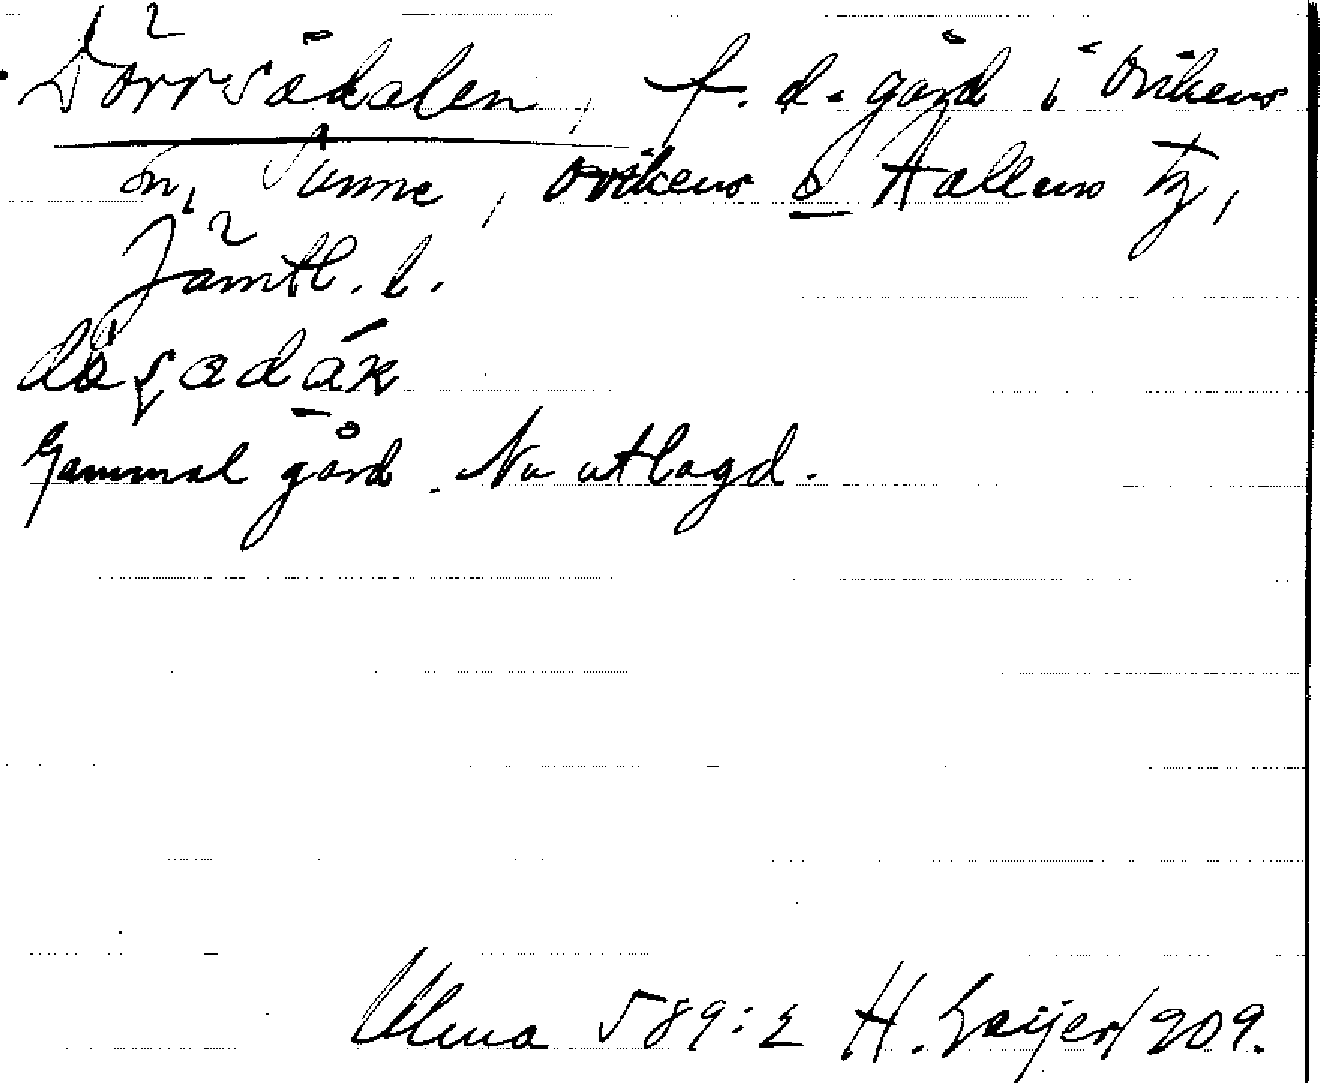 Dörrsådalen, f. d. gård i Ovikens
sn, Sunne, Ovikens o Hallens tg,
Jämtl. l.
Gammal gård. Nu utlagd.
Ulma 589:2 H. Geijer 1909.